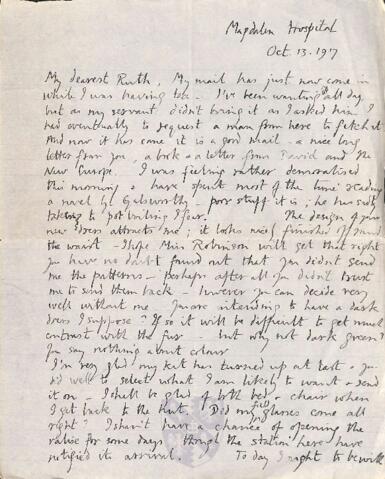 Magdalen Hospital
Oct 13. 1917
My dearest Ruth, My mail has just now come in
while I was having tea. I've been wanting it all day
but as my servant didn't bring it as I asked him I
had eventually to request a man from here to fetch it
And now it has come it is a good mail - a nice long
letter from you, a book & a letter from David and the
New Europe. I was feeling rather demoralised
this morning & have spent most of the time reading
a novel by Galsworthy - poor stuff it is; he has sadly
taken to pot writing I fear. The design of your
new dress attracts me; it looks nicely finished off round
the waist - I hope Miss Robinson will get that right
You have no doubt found out that you didn't send
me the patterns - perhaps after all you didn't trust
me to send them back - however you can decide very
well without me You are intending to have a dark
dress I suppose? If so it will be difficult to get much
contrast with the fur - but why not dark green?
You say nothing about colour
I'm very glad my kit has turned up at last & you
did well to select what I am likely to want & send
it on - I shall be glad of both bed & chair when
I get back to the Hut. Did my field glasses come all
right? I shan't have a chance of opening the
valise for some days though the station here have
notified its arrival. To day I ought to be with